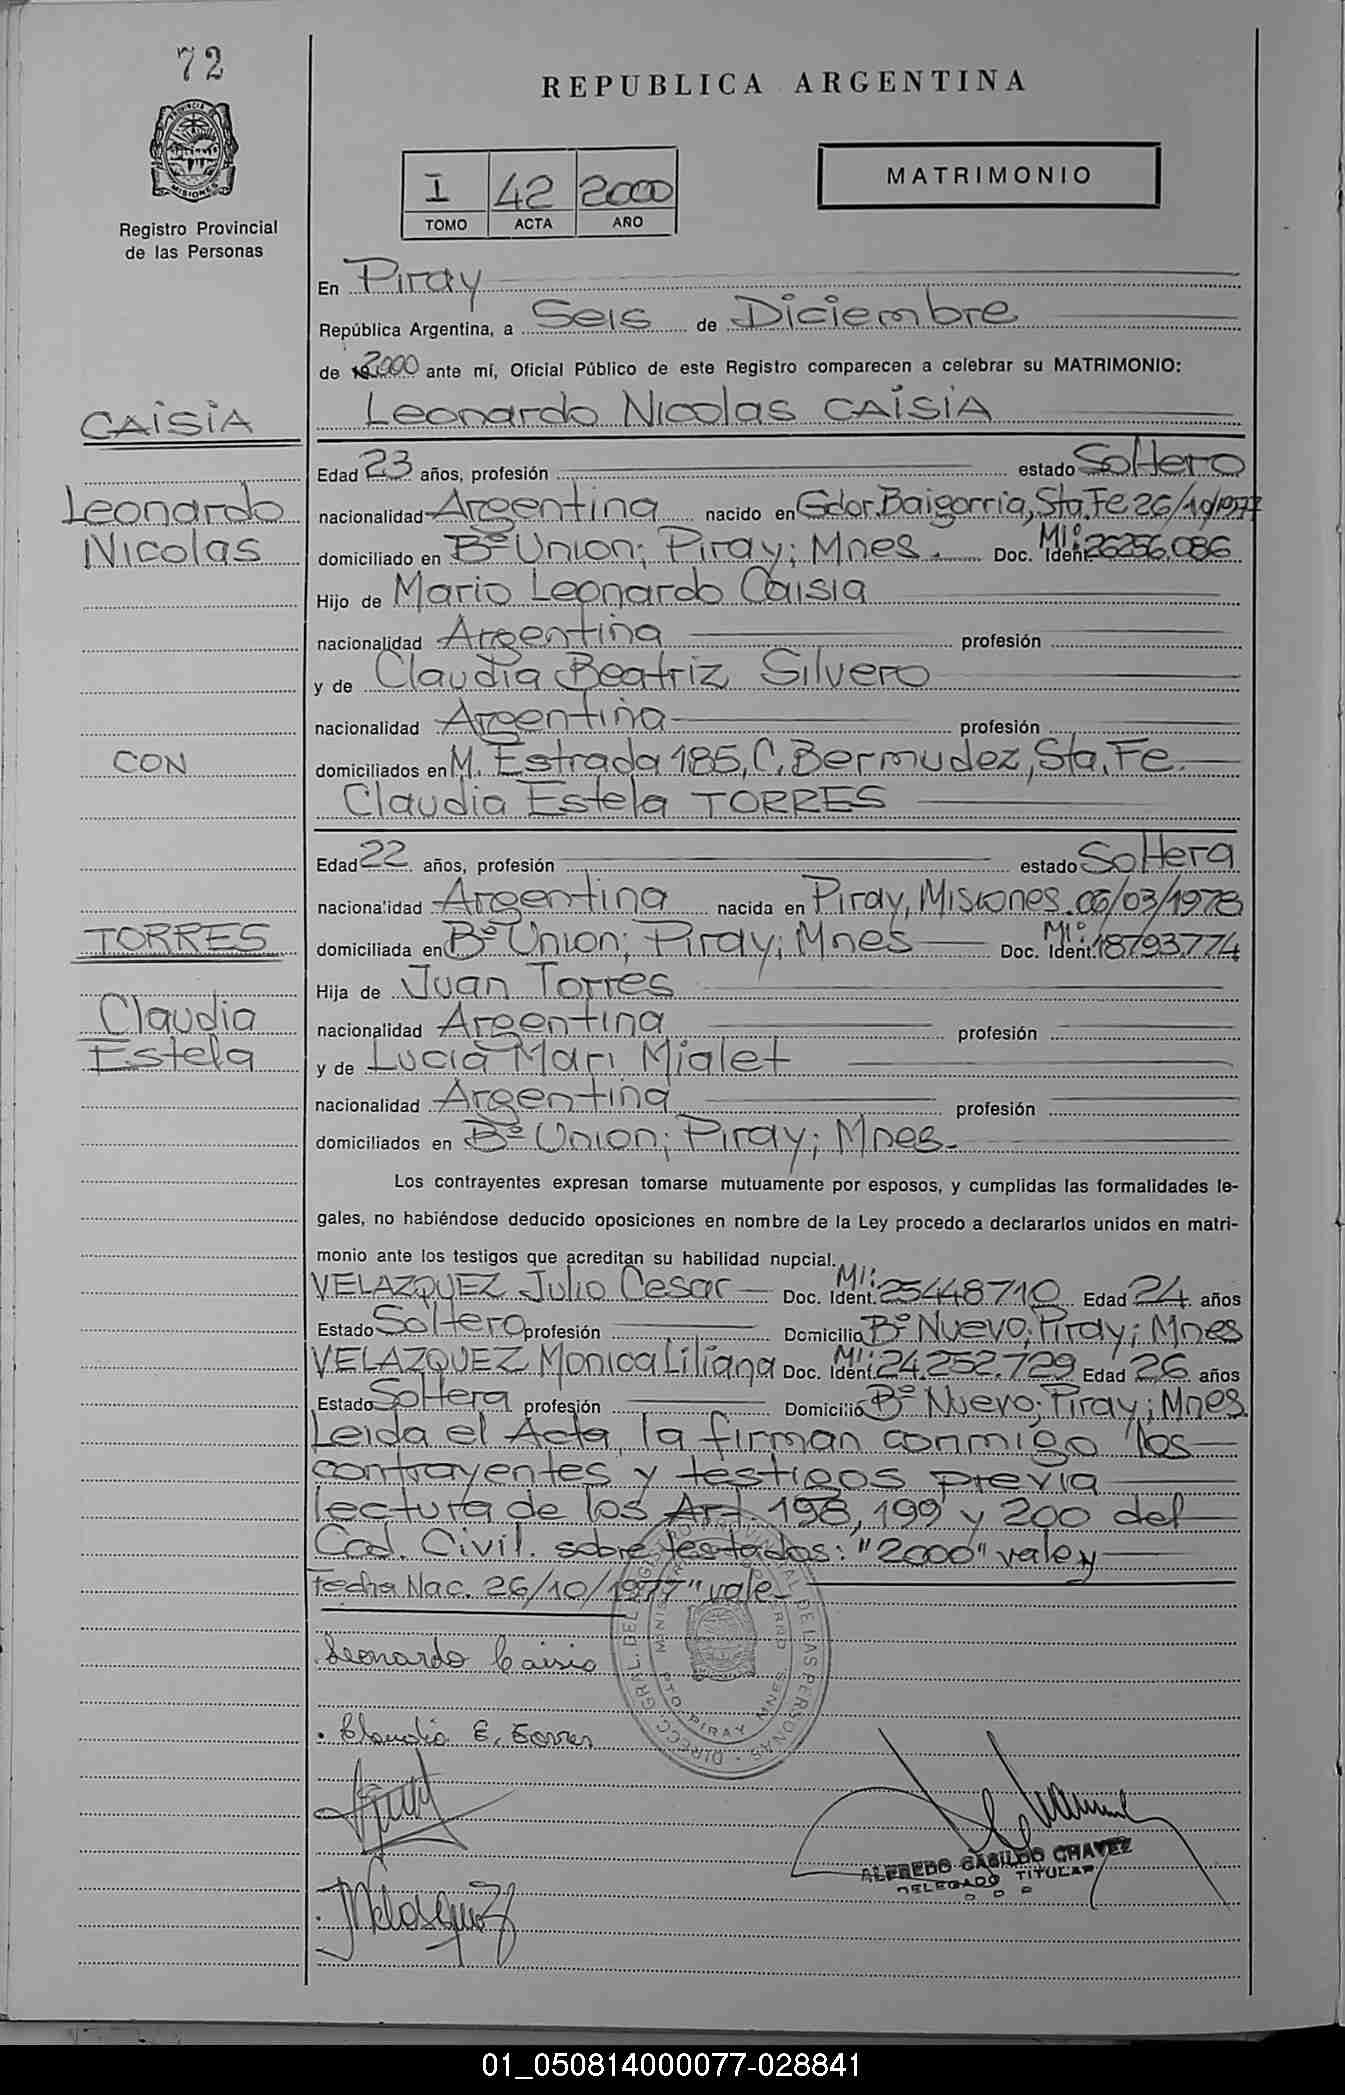 72
REPUBLICA ARGENTINA
PROVINCIA DE
MISIONES
MATRIMONIO
I 42 2000
TOMO ACTA AÑO
Registro Provincial
de las Personas
En Piray
República Argentina, a Seis de Diciembre
de 2000 ante mí, Oficial Público de este Registro comparecen a celebrar su MATRIMONIO:
CAISIA
Leonardo Nicolas CAISIA
Edad 23 años, profesión estado Soltero
Leonardo
nacionalidad Argentina nacido en Gdor. Baigorria, Sta. Fe 26/10/1977
Nicolas
domiciliado en Bº Union; Piray; Mnes. Doc. Ident. MI: 26256.086
Hijo de Mario Leonardo Caisia
nacionalidad Argentina profesión
y de Claudia Beatriz Silvero
nacionalidad Argentina profesión
CON
domiciliados en M. Estrada 185, C. Bermudez, Sta. Fe.
Claudia Estela TORRES
Edad 22 años, profesión estado Soltera
nacionalidad Argentina nacida en Piray, Misiones. 06/03/1978
TORRES
domiciliada en Bº Union; Piray; Mnes Doc. Ident. MI: 18793.774
Hija de Juan Torres
Claudia
nacionalidad Argentina profesión
Estela
y de Lucia Mari Mialet
nacionalidad Argentina profesión
domiciliados en Bº Union; Piray; Mnes.
Los contrayentes expresan tomarse mutuamente por esposos, y cumplidas las formalidades le-
gales, no habiéndose deducido oposiciones en nombre de la Ley procedo a declararlos unidos en matri-
monio ante los testigos que acreditan su habilidad nupcial.
VELAZQUEZ Julio Cesar Doc. Ident. MI: 25448710 Edad 24 años
Estado Soltero profesión Domicilio Bº Nuevo; Piray; Mnes
VELAZQUEZ Monica Liliana Doc. Ident. MI: 24.252.729 Edad 26 años
Estado Soltera profesión Domicilio Bº Nuevo; Piray; Mnes.
Leida el Acta, la firman conmigo los
contrayentes y testigos previa
lectura de los Art. 198, 199 y 200 del
Cod. Civil. sobre testados: "2000" vale y
Fecha Nac. 26/10/1977" vale
Leonardo Caisia
Claudia E. Torres
DIRECC. GRAL. DEL REGISTRO PROVINCIAL DE LAS PERSONAS
PTO PIRAY MNES
ALFREDO CASILDO CHAVEZ
DELEGADO TITULAR
01_050814000077-028841